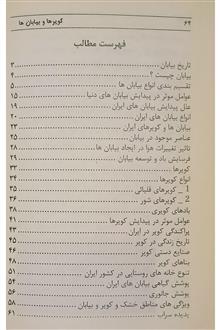 ۶۴ کویرها و بیابان ها
فهرست مطالب
تاریخ بیابان ۳
بیابان چیست ؟ ۴
تقسیم بندی انواع بیابان ها ۵
عوامل موثر در پیدایش بیابان های دنیا ۱۵
علل پیدایش بیابان های ایران ۱۹
انواع بیابان های ایران ۲۰
بیابان ها و کویرهای ایران ۲۳
عناصر موجود در بیابان ۲۵
تاثیر تغییرات هوا در ایجاد بیابان ها ۲۸
فرسایش باد و توسعه بیابان ۲۹
کویرها ۳۳
انواع کویرها ۳۴
1 _ کویرهای قلیائی ۳۵
2 _ کویرهای شور ۳۶
بادهای کویری
عوامل موثر در پیدایش کویرها
پراکندگی کویر در ایران
تاریخ زندگی در کویر ۴۵
صنایع دستی کویر
بناهای کویر
تنوع خانه های روستایی در کشور ایران ۵۱
پوشش گیاهی بیابان های ایران
پوشش جانوری
ویژگی های مناطق خشک و کویر و بیابان ۵۸
پدیده سراب ۶۱